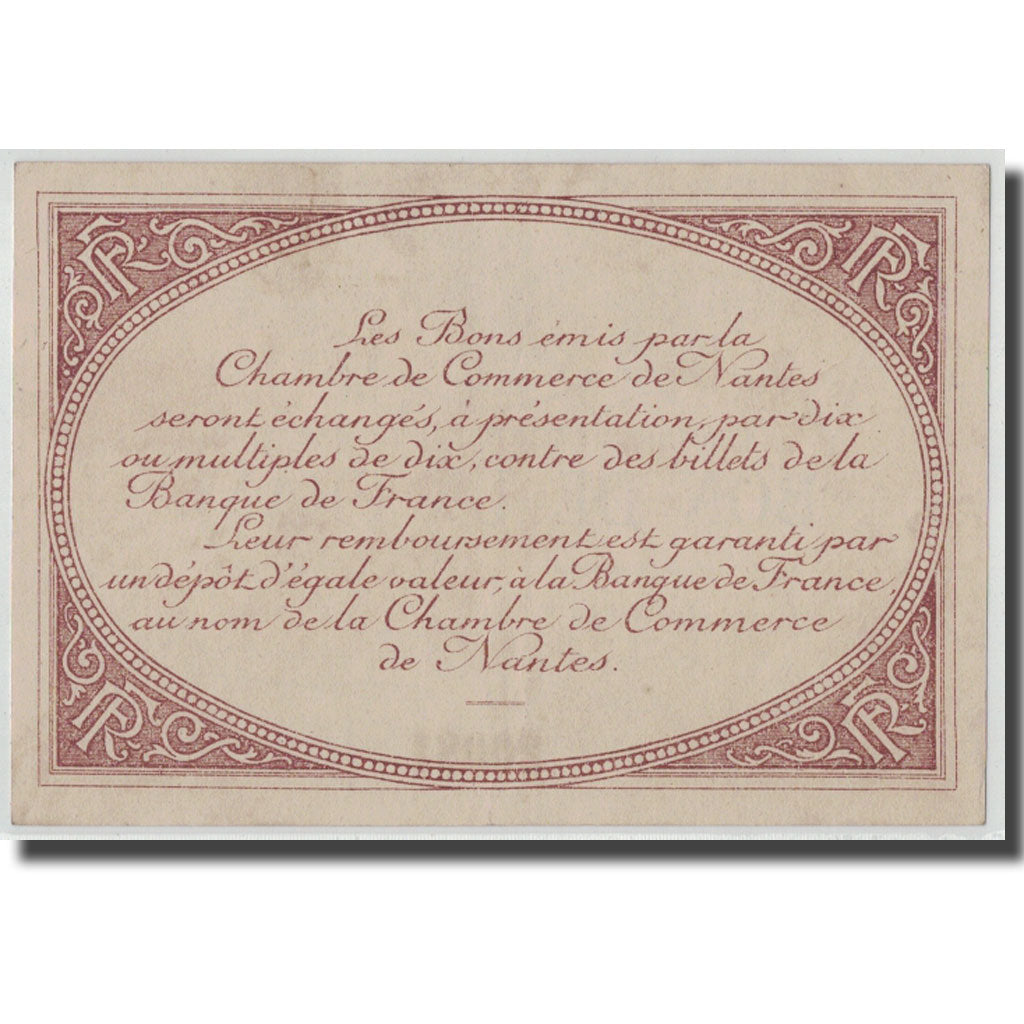 RF
RF
Les Bons émis par la
Chambre de Commerce de Nantes
seront échangés, à présentation, par dix
ou multiples de dix, contre des billets de la
Banque de France.
Leur remboursement est garanti par
un dépôt d'égale valeur, à la Banque de France,
au nom de la Chambre de Commerce
de Nantes.
RF
RF